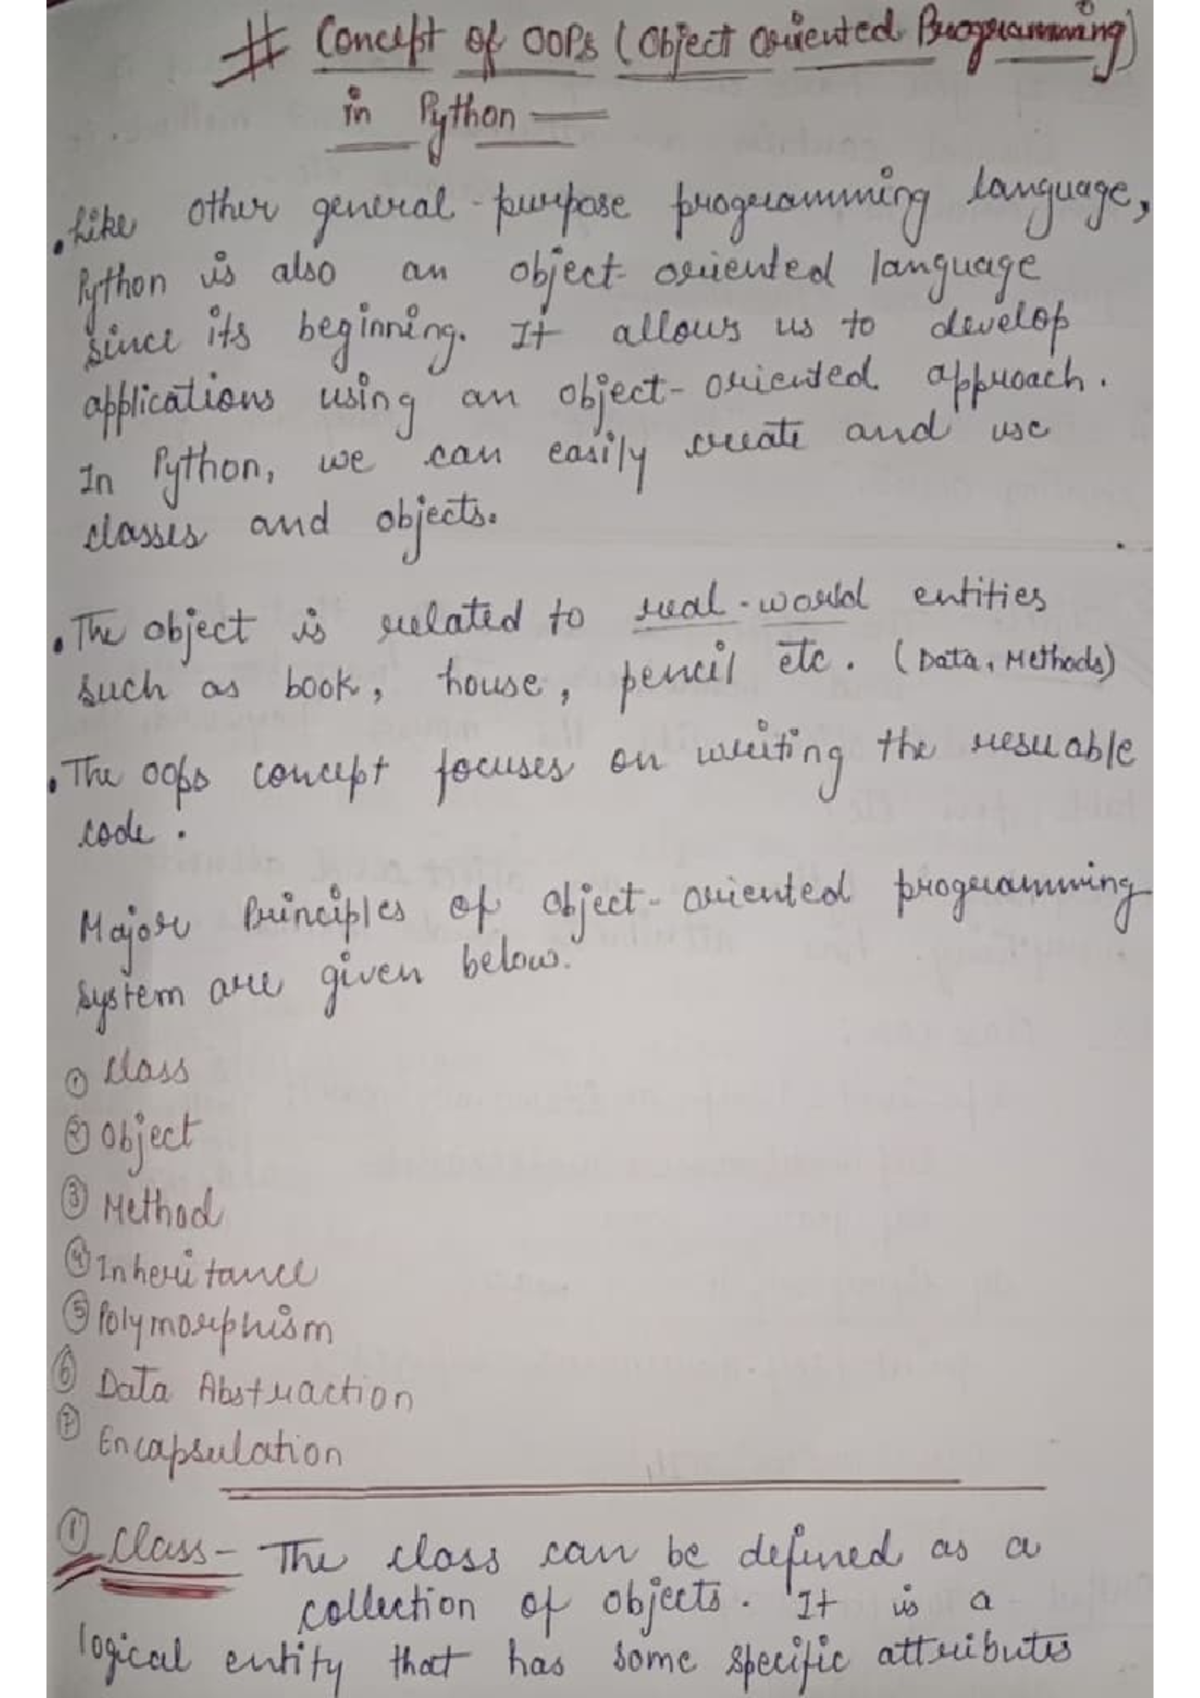 # Concept of OOPs (Object Oriented Programming)
in Python —
• Like other general-purpose programming language,
Python is also an object-oriented language
since its beginning. It allows us to develop
applications using an object-oriented approach.
In Python, we can easily create and use
classes and objects.
• The object is related to real-world entities
such as book, house, pencil etc. (Data, Methods)
• The oops concept focuses on writing the reusable
code.
Major Principles of object-oriented programming
system are given below.
① Class
② Object
③ Method
④ Inheritance
⑤ Polymorphism
⑥ Data Abstraction
⑦ Encapsulation
① Class - The class can be defined as a
collection of objects. It is a
logical entity that has some specific attributes